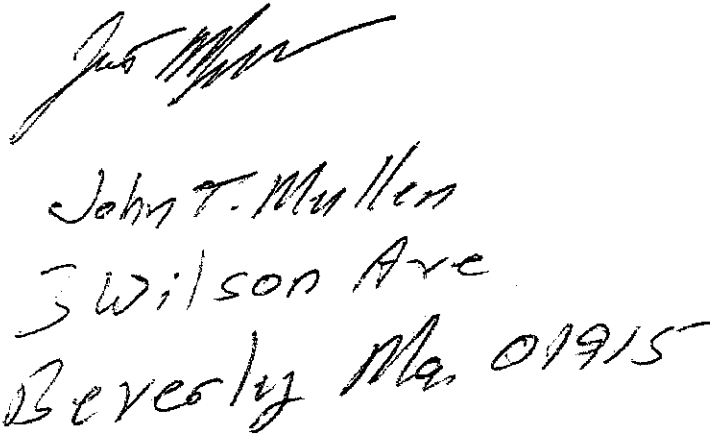 John T. Mullen
3 Wilson Ave
Beverly Ma. 01915